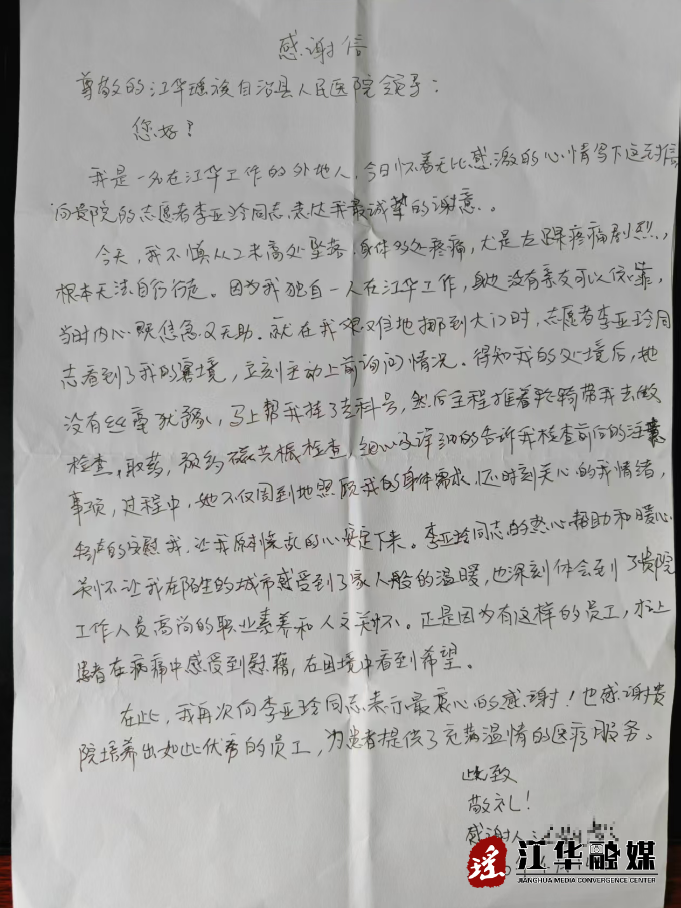 感谢信
尊敬的江华瑶族自治县人民医院领导：
您好？
我是一名在江华工作的外地人，今日怀着无比感激的心情写下这封信
向贵院的志愿者李亚玲同志表达我最诚挚的谢意。
今天，我不慎从2米高处坠落，身体多处疼痛，尤是左踝疼痛剧烈，
根本无法自行行走。因为我独自一人在江华工作，身边没有亲友可以依靠，
当时内心既焦急又无助。就在我艰难地挪到大门时，志愿者李亚玲同
志看到了我的窘境，立刻主动上前询问情况。得知我的处境后，她
没有丝毫犹豫，马上帮我挂了专科号，然后全程推着轮椅带我去做
检查，取药，预约磁共振检查，细心又详细的告诉我检查前后的注意
事项，过程中，她不仅周到地照顾我的身体需求，还时刻关心的我情绪，
轻声的安慰我，让我原本慌乱的心安定下来。李亚玲同志的热心相助和暖心
关怀让我在陌生的城市感受到了家人般的温暖，也深刻体会到了贵院
工作人员高尚的职业素养和人文关怀。正是因为有这样的员工，才让
患者在病痛中感受到慰藉，在困境中看到希望。
在此，我再次向李亚玲同志表示最衷心的感谢！也感谢贵
院培养出如此优秀的员工，为患者提供了充满温情的医疗服务。
此致
敬礼！
感谢人：
瑶 江华融媒
JIANGHUA MEDIA CONVERGENCE CENTER